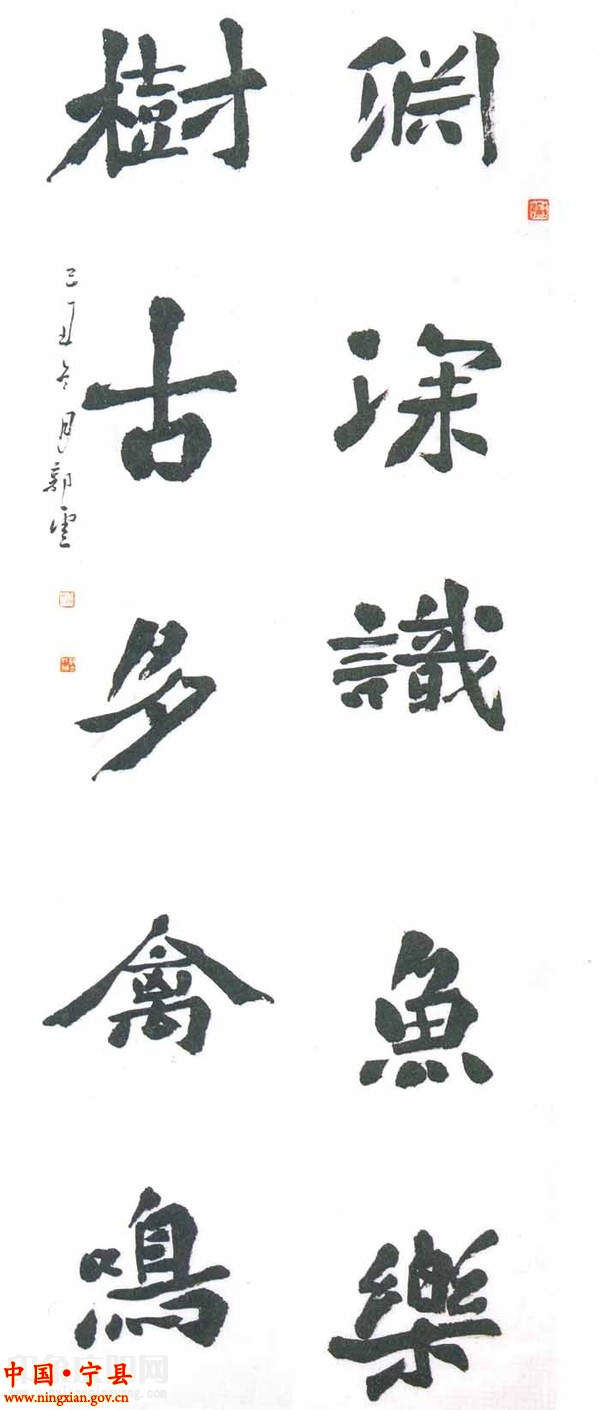 渊深識魚樂
樹古多禽鳴
己丑冬月郭雲
中国·宁县
www.ningxian.gov.cn